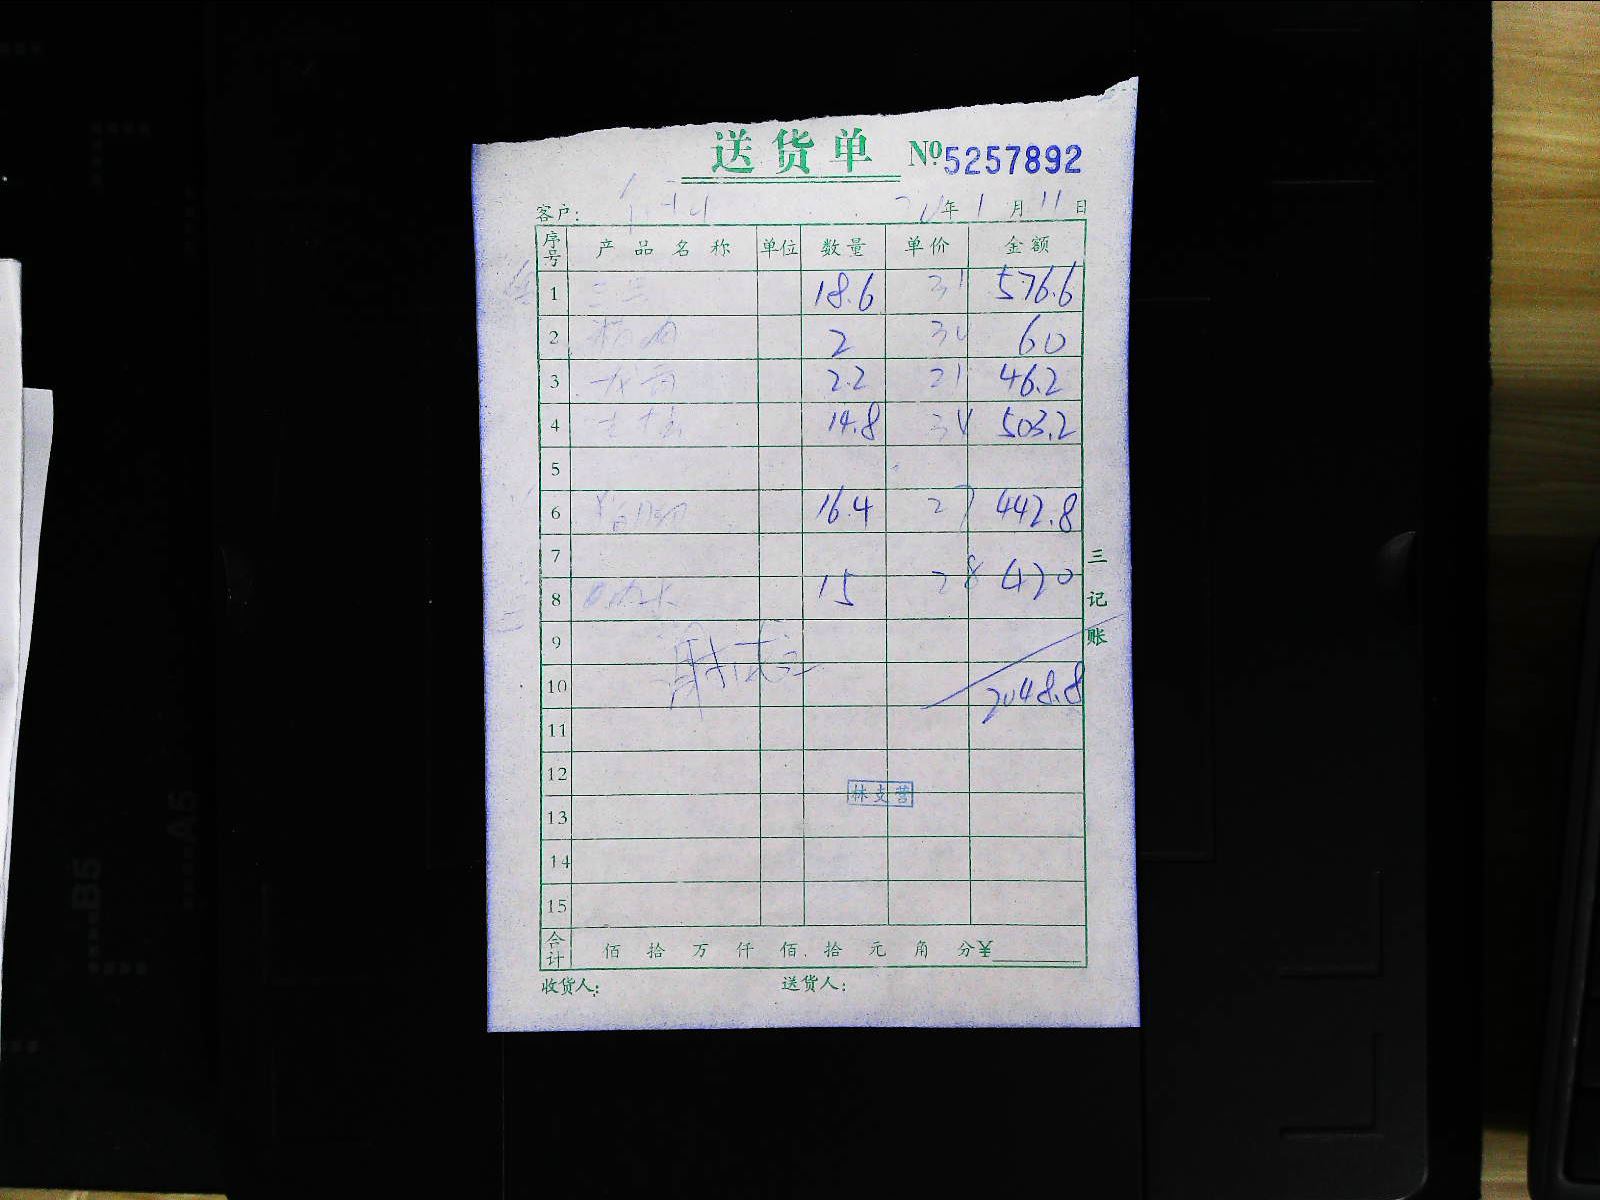 送货单 №5257892
客户: 年 1 月 11 日
序号 产品名称 单位 数量 单价 金额
1 18.6 31 576.6
2 2 30 60
3 2.2 21 46.2
4 14.8 34 503.2
5
6 16.4 27 442.8
7
8 15 28 420
9
10 2048.8
11
12
13
14
15
林支营
合计 佰 拾 万 仟 佰 拾 元 角 分 ¥
收货人: 送货人:
三记账
B5
A5